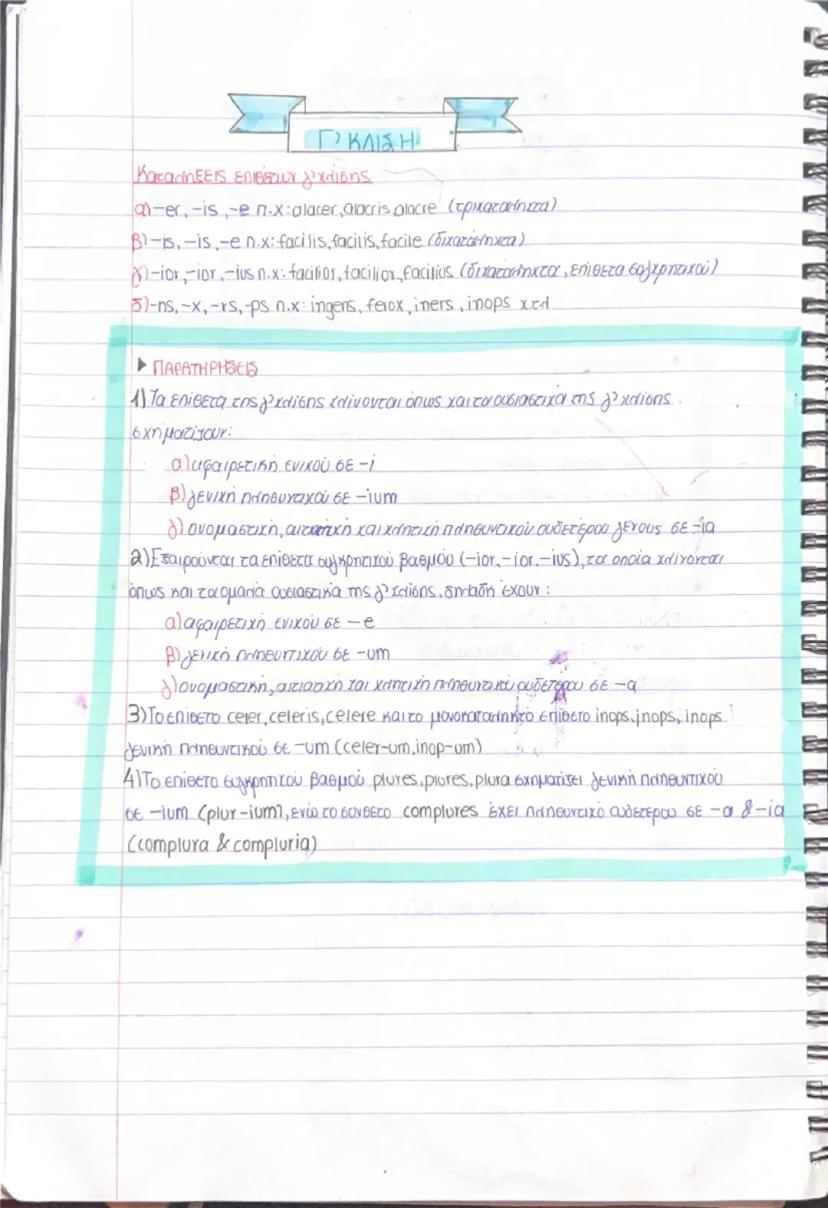 Γ' ΚΛΙΣΗ
Καταλήξεις επιθέτων γ' κλίσης
α) -er, -is, -e π.χ: alacer, alacris, alacre (τρικατάληκτα)
β) -is, -is, -e π.χ: facilis, facilis, facile (δικατάληκτα)
γ) -ior, -ior, -ius π.χ: facilior, facilior, facilius (δικατάληκτα, επίθετα συγκρητικού)
δ) -ns, -x, -rs, -ps π.χ: ingens, ferox, iners, inops κτλ
▶ ΠΑΡΑΤΗΡΗΣΕΙΣ
1) Τα επίθετα της γ' κλίσης κλίνονται όπως και τα ουσιαστικά της γ' κλίσης.
σχηματίζουν:
α) αφαιρετική ενικού σε -i
β) γενική πληθυντικού σε -ium
γ) ονομαστική, αιτιατική και κλητική πληθυντικού ουδετέρου γένους σε -ia
2) Εξαιρούνται τα επίθετα συγκρητικού βαθμού (-ior, -ior, -ius), τα οποία κλίνονται
όπως και τα ομαλά ουσιαστικά της γ' κλίσης, δηλαδή έχουν:
α) αφαιρετική ενικού σε -e
β) γενική πληθυντικού σε -um
γ) ονομαστική, αιτιατική και κλητική πληθυντικού ουδετέρου σε -a
3) Το επίθετο celer, celeris, celere και το μονοκατάληκτο επίθετο inops, inops, inops
γενική πληθυντικού σε -um (celer-um, inop-um)
4) Το επίθετο συγκρητικού βαθμού plures, plures, plura σχηματίζει γενική πληθυντικού
σε -ium (plur-ium), ενώ το σύνθετο complures έχει πληθυντικό ουδετέρου σε -a & -ia
(complura & compluria)